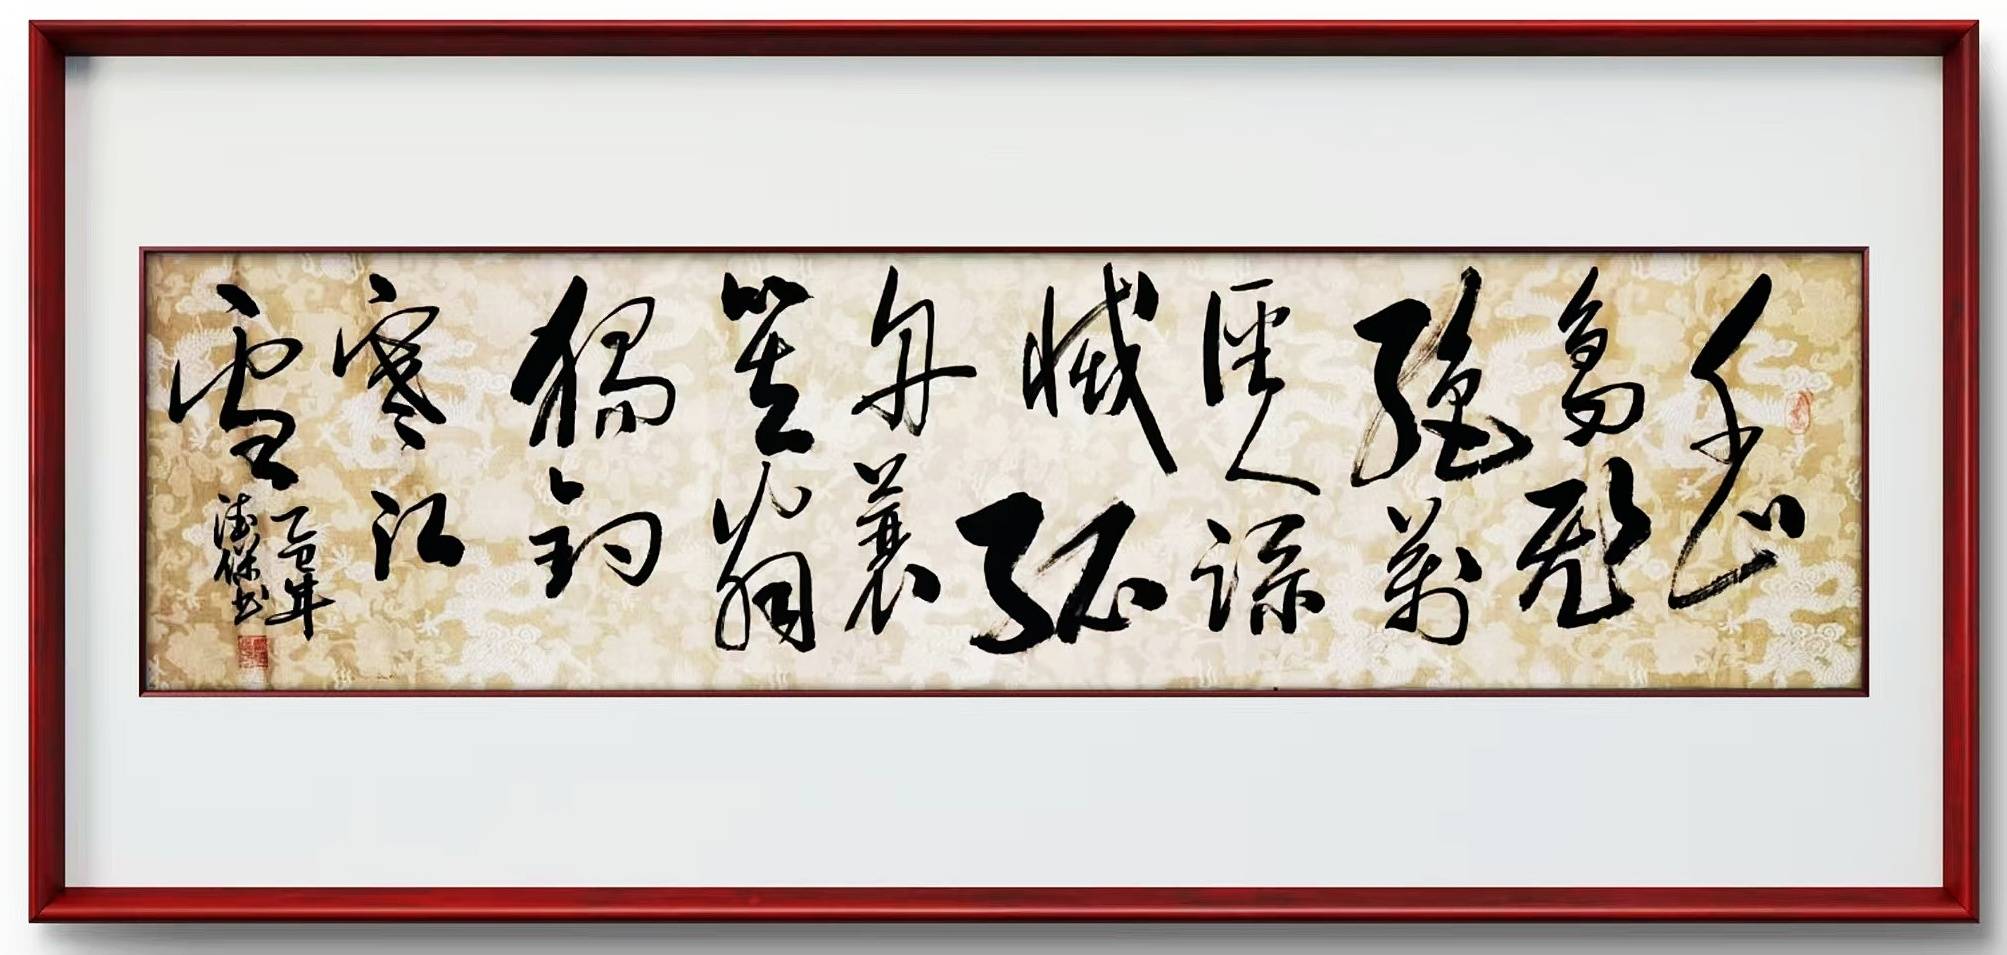 千山
鳥飛
絶萬
徑人踪
滅孤
舟蓑
笠翁
獨釣
寒江
雪
乙巳年
德保书